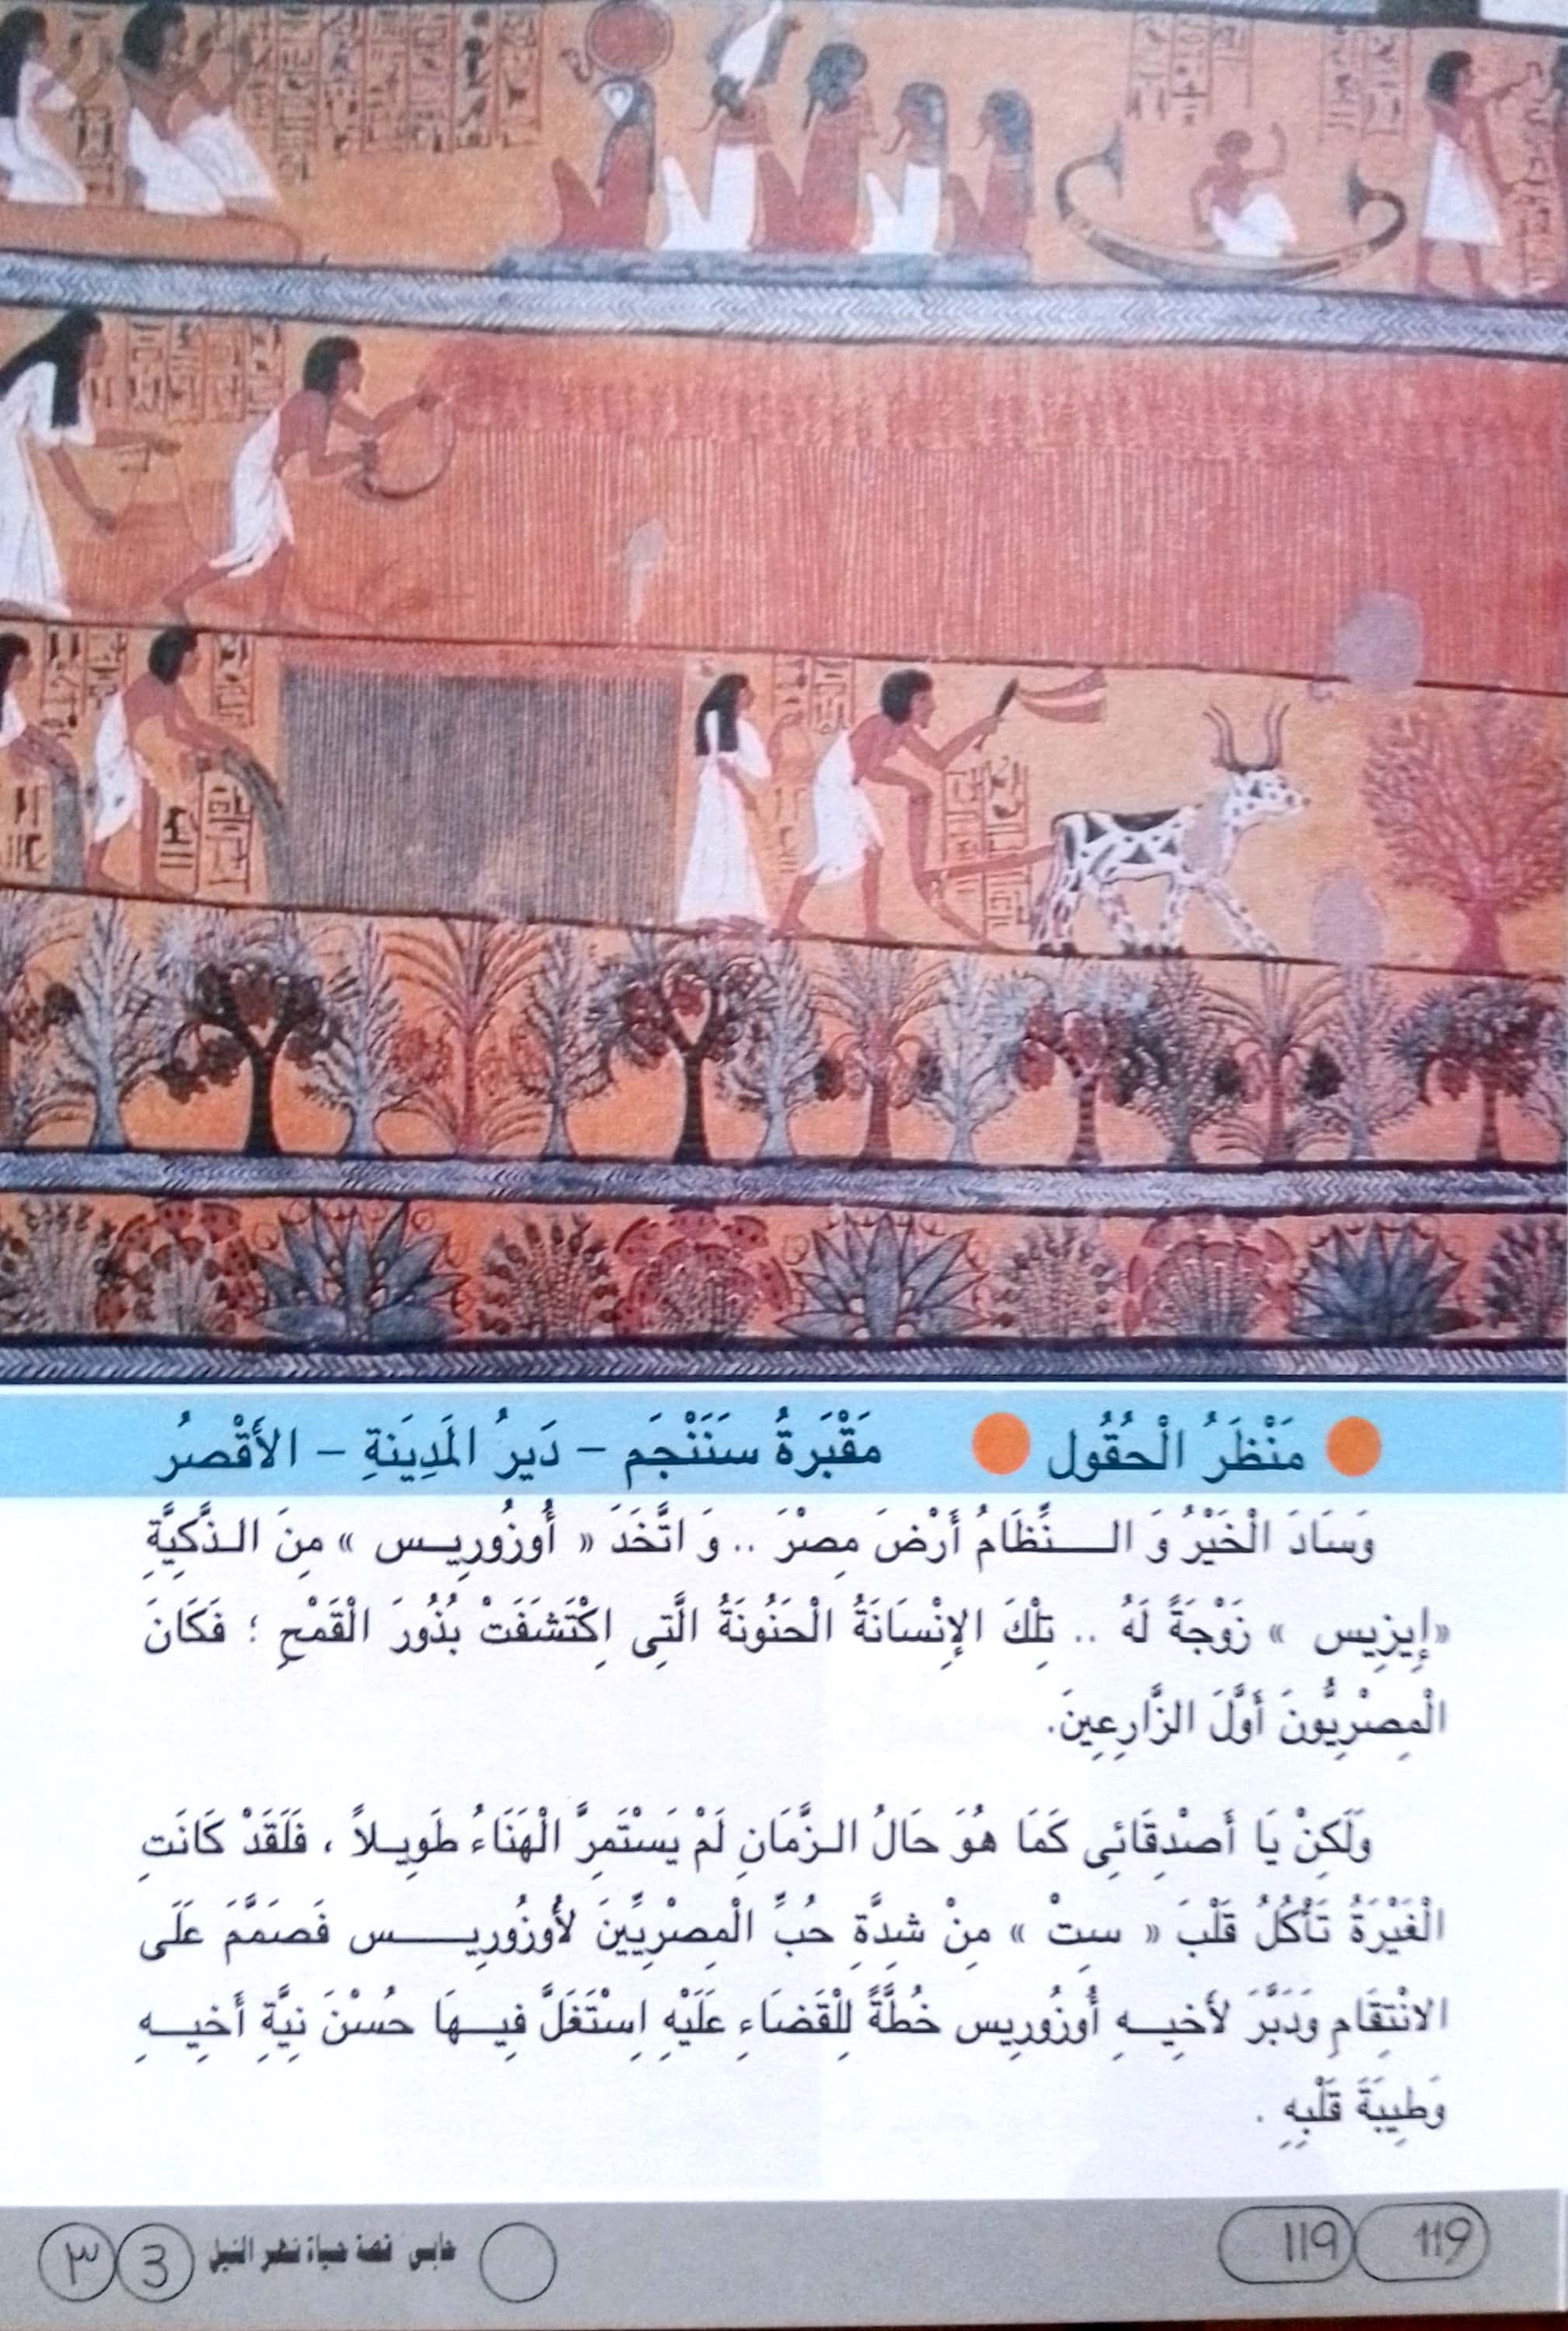 مَنْظَرُ الْحُقُول مَقْبَرةُ سنَنْجَم – دَيرُ المَدِينَةِ – الأَقْصرُ
وَسَادَ الْخَيْرُ وَ الـــنِّظَامُ أَرْضَ مِصْرَ .. وَ اتَّخَذَ « أُوزُورِيـس » مِنَ الـذَّكِيَّةِ
«إِيزِيس » زَوْجَةً لَهُ .. تِلْكَ الإِنْسَانَةُ الْحَنُونَةُ الَّتِى اِكْتَشَفَتْ بُذُورَ الْقَمْحِ ؛ فَكَانَ
الْمِصْرِيُّونَ أَوَّلَ الزَّارِعِينَ.
وَلَكِنْ يَا أَصْدِقَائِى كَمَا هُوَ حَالُ الـزَّمَانِ لَمْ يَسْتَمِرَّ الْهَنَاءُ طَوِيـلاً ، فَلَقَدْ كَانَتِ
الْغَيْرَةُ تَأْكُلُ قَلْبَ « سِتْ » مِنْ شِدَّةِ حُبِّ الْمِصْرِيِّينَ لأُوزُورِيــــس فَصَمَّمَ عَلَى
الانْتِقَامِ وَدَبَّرَ لأَخِيــهِ أُوزُورِيس خُطَّةً لِلْقَضَاءِ عَلَيْهِ اِسْتَغَلَّ فِيـهَا حُسْنَ نِيَّةِ أَخِيــهِ
وَطِيبَةَ قَلْبِهِ .
119 119 حابى قصة حياة نهر النيل 3 ٣